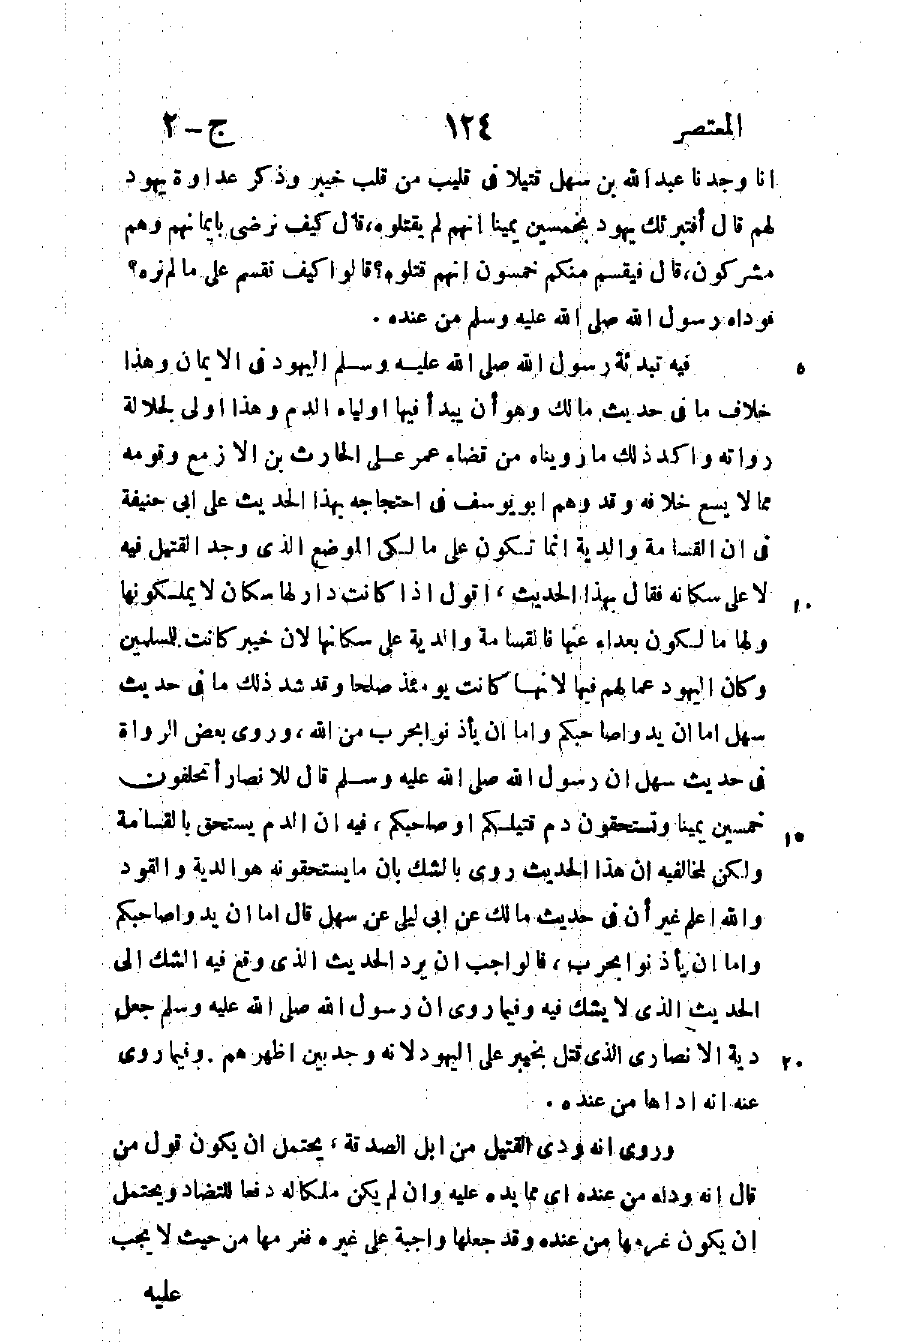 المعتصر ١٢٤ ج - ٢
انا وجدنا عبد الله بن سهل قتيلا فى قليب من قلب خيبر وذكر عداوة يهود
لهم قال أفتبرئك يهود بخمسين يمينا انهم لم يقتلوه، قال كيف نرضى بايمانهم وهم
مشركون، قال فيقسم منكم خمسون انهم قتلوه؟ قالوا كيف نقسم على ما لم نره؟
فوداه رسول الله صلى الله عليه وسلم من عنده .
فيه تبدئة رسول الله صلى الله عليه وسلم اليهود فى الايمان وهذا ٥
خلاف ما فى حديث مالك وهو أن يبدأ فيها اولياء الدم وهذا اولى لجلالة
رواته واكد ذلك ما رويناه من قضاء عمر على الحارث بن الازمع وقومه
مما لا يسع خلافه وقد وهم ابو يوسف فى احتجاجه بهذا الحديث على ابى حنيفة
فى ان القسامة والدية انما تكون على مالكى الموضع الذى وجد القتيل فيه
لا على سكانه فقال بهذا الحديث، اقول اذا كانت دار لها سكان لا يملكونها ١٠
ولها مالكون بعداء عنها فالقسامة والدية على سكانها لان خيبر كانت للمسلمين
وكان اليهود عمالهم فيها لانها كانت يومئذ صلحا وقد شد ذلك ما فى حديث
سهل اما ان يدوا صاحبكم واما ان يأذنوا بحرب من الله، وروى بعض الرواة
فى حديث سهل ان رسول الله صلى الله عليه وسلم قال للانصار أتحلفون
خمسين يمينا وتستحقون دم قتيلكم او صاحبكم، فيه ان الدم يستحق بالقسامة ١٥
ولكن لمخالفيه ان هذا الحديث روى بالشك بان ما يستحقونه هو الدية والقود
والله اعلم غير أن فى حديث مالك عن ابى ليلى عن سهل قال اما ان يدوا صاحبكم
واما ان يأذنوا بحرب، فالواجب ان يرد الحديث الذى وقع فيه الشك الى
الحديث الذى لا يشك فيه وفيما روى ان رسول الله صلى الله عليه وسلم جعل
دية الانصارى الذى قتل بخيبر على اليهود لانه وجد بين اظهرهم . وفيما روى ٢٠
عنه انه اداها من عنده .
وروى انه ودى القتيل من ابل الصدقة، يحتمل ان يكون قول من
قال انه وداه من عنده اى مما يده عليه وان لم يكن ملكا له دفعا للتضاد ويحتمل
ان يكون غرمها من عنده وقد جعلها واجبة على غيره فغرمها من حيث لا يجب
عليه